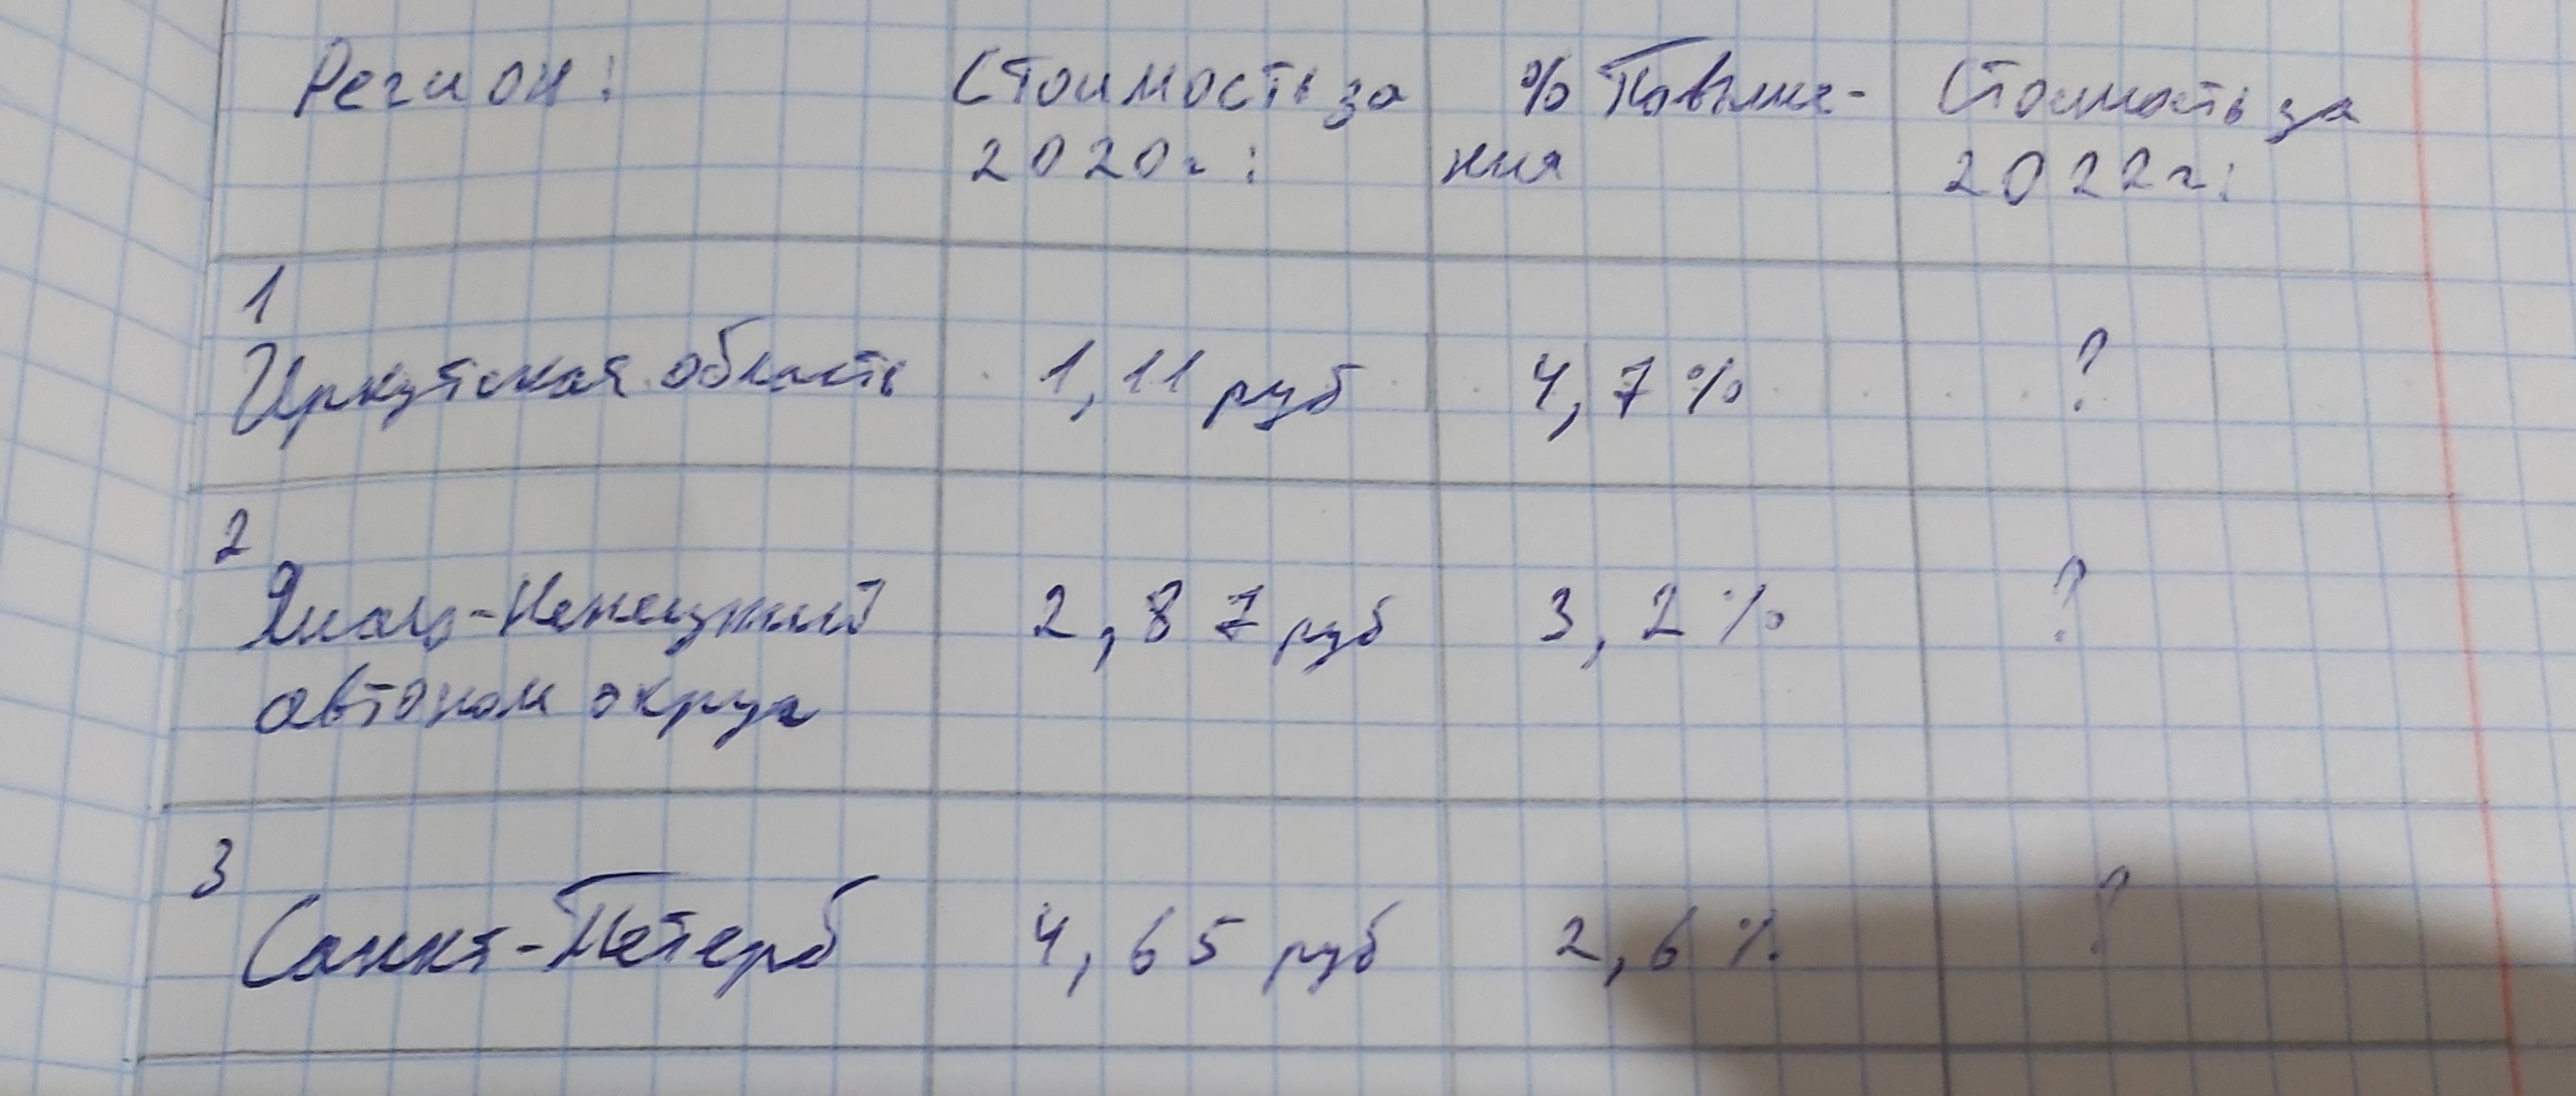 Регион: Стоимость за % Повыше- Стоимость за
2020г: ния 2022г:
1
Иркутская область 1,11 руб 4,7% ?
2
Ямало-Ненецкий 2,87 руб 3,2% ?
автоном округ
3
Санкт-Петерб 4,65 руб 2,6% ?